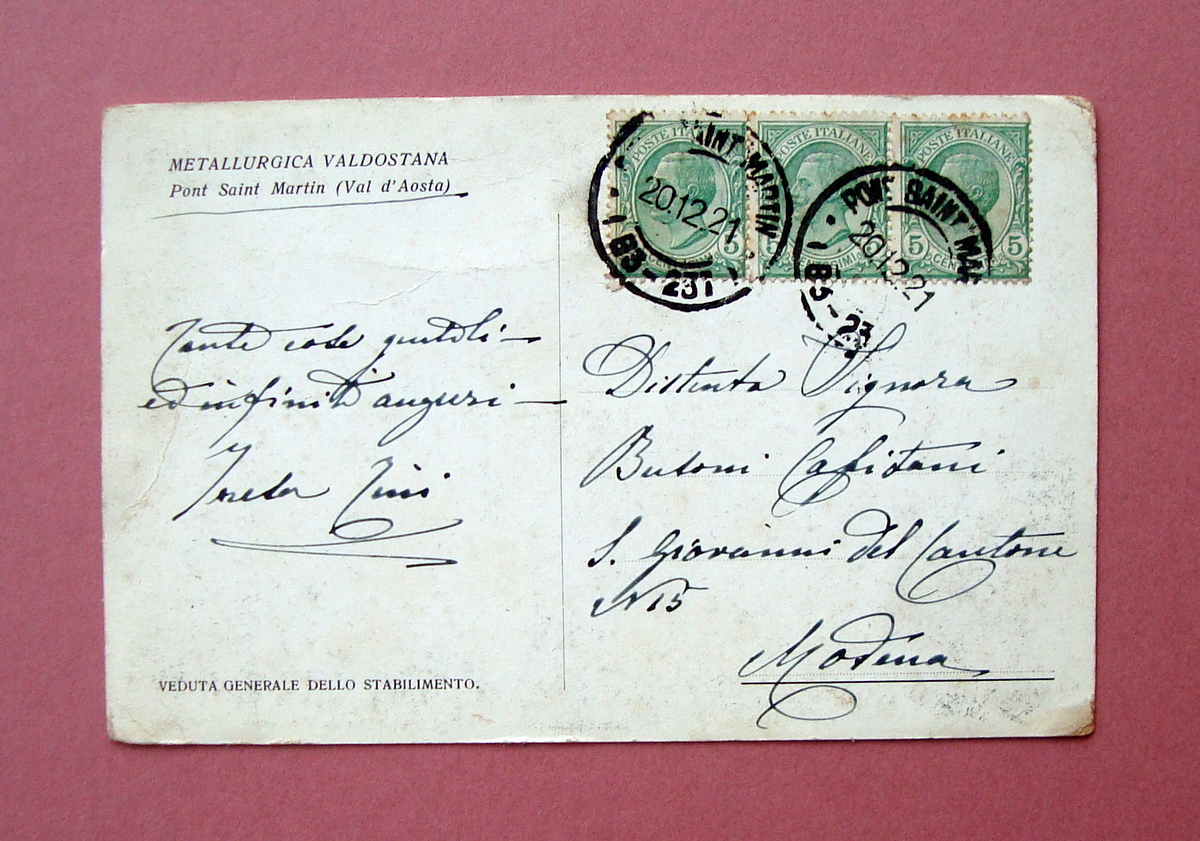 METALLURGICA VALDOSTANA
Pont Saint Martin (Val d'Aosta)
Tante cose gentili —
ed infiniti auguri —
Zini
VEDUTA GENERALE DELLO STABILIMENTO.
POSTE ITALIANE
POSTE ITALIANE
POSTE ITALIANE
5 5
5
5 5
SAINT MARTIN
20.12.21
83-237
PONT SAINT MAR
20.12.21
83-23
Distinta Signora
Butoni Capitani
S. Giovanni del Cantone
N 15
Modena